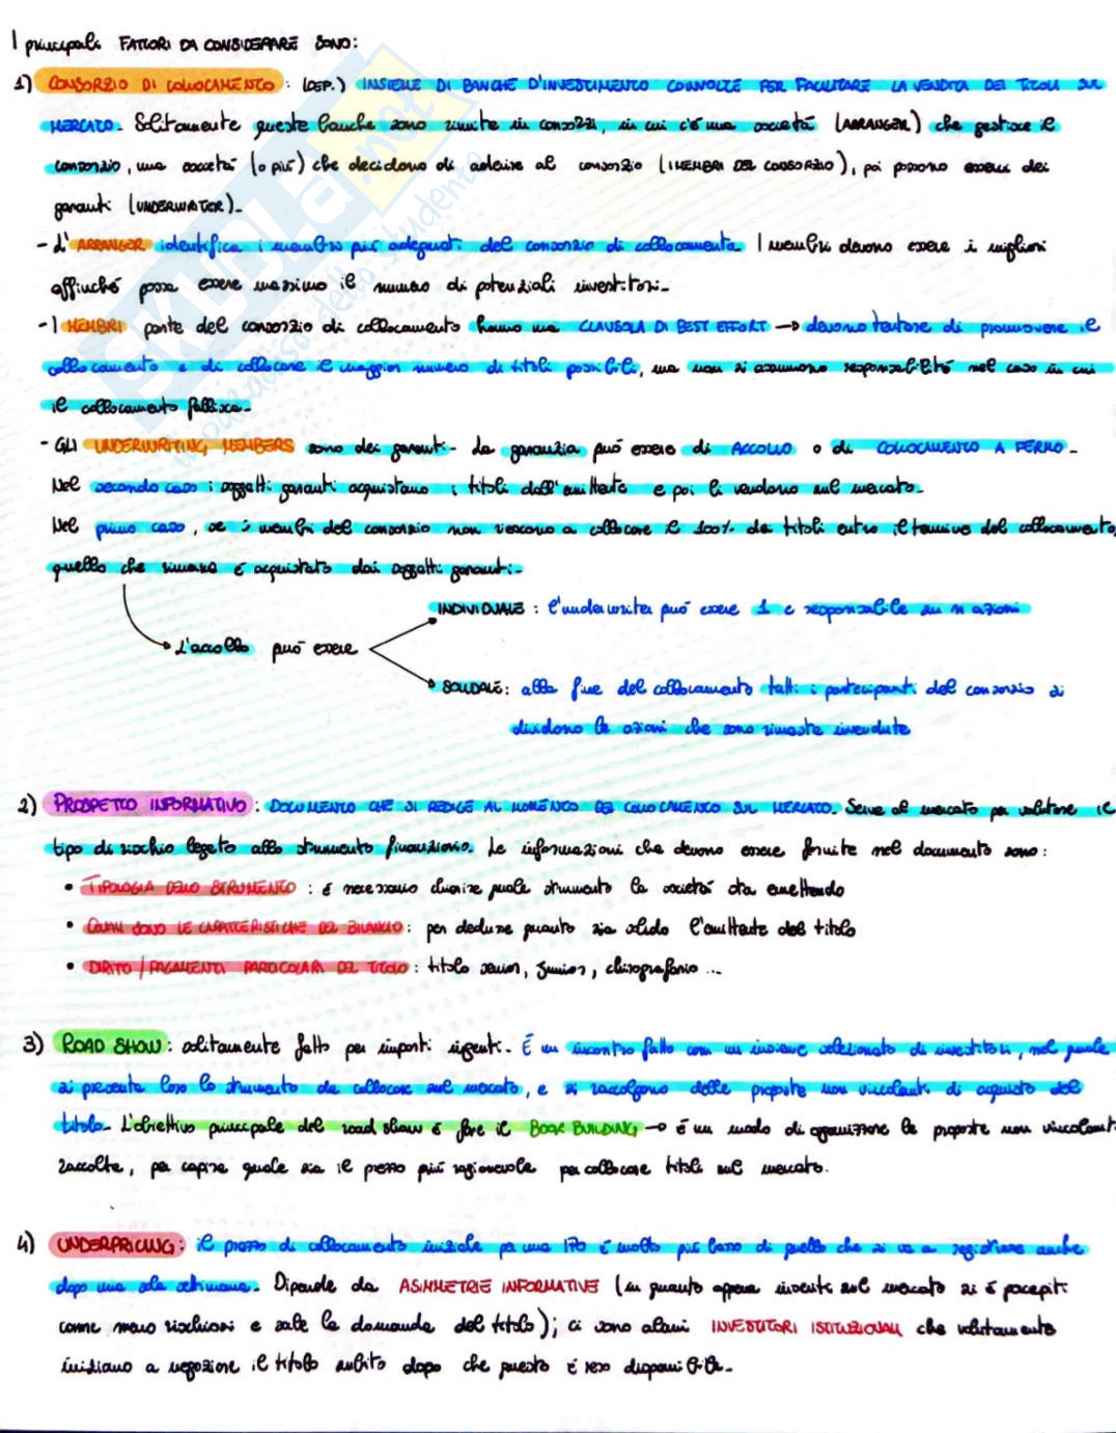 I principali FATTORI DA CONSIDERARE SONO:
1) CONSORZIO DI COLLOCAMENTO: (DEF.) INSIEME DI BANCHE D'INVESTIMENTO COINVOLTE PER FACILITARE LA VENDITA DEI TITOLI SUL
MERCATO. Solitamente queste banche sono riunite in consorzi, in cui c'è una società (ARRANGER) che gestisce il
consorzio, una società (o più) che decidono di aderire al consorzio (I MEMBRI DEL CONSORZIO), poi possono esserci dei
garanti (UNDERWRITER).
- L'ARRANGER identifica i membri più adeguati del consorzio di collocamento. I membri devono essere i migliori
affinché possa essere massimo il numero di potenziali investitori.
- I MEMBRI parte del consorzio di collocamento hanno una CLAUSOLA DI BEST EFFORT → devono tentare di promuovere il
collocamento e di collocare il maggior numero di titoli possibili, ma non si assumono responsabilità nel caso in cui
il collocamento fallisca.
- GLI UNDERWRITING MEMBERS sono dei garanti. La garanzia può essere di ACCOLLO o di COLLOCAMENTO A FERMO.
Nel secondo caso i soggetti garanti acquistano i titoli dall'emittente e poi li vendono sul mercato.
Nel primo caso, se i membri del consorzio non riescono a collocare il 100% dei titoli entro il termine del collocamento,
quello che rimane è acquistato dai soggetti garanti.
INDIVIDUALE: l'underwriter può essere 1 e responsabile su n azioni
L'accollo può essere
SOLIDALE: alla fine del collocamento tutti i partecipanti del consorzio si
dividono le azioni che sono rimaste invendute
2) PROSPETTO INFORMATIVO: DOCUMENTO CHE SI REDIGE AL MOMENTO DEL COLLOCAMENTO SUL MERCATO. Serve al mercato per valutare il
tipo di rischio legato allo strumento finanziario. Le informazioni che devono essere fornite nel documento sono:
• TIPOLOGIA DELLO STRUMENTO: è necessario chiarire quale strumento la società sta emettendo
• QUALI SONO LE CARATTERISTICHE DEL BILANCIO: per dedurre quanto sia solido l'emittente del titolo
• DIRITTO/PAGAMENTI PARTICOLARI DEL TITOLO: titolo senior, junior, chirografario ...
3) ROAD SHOW: solitamente fatto per importi ingenti. È un incontro fatto con un insieme selezionato di investitori, nel quale
si presenta loro lo strumento da collocare sul mercato, e si raccolgono delle proposte non vincolanti di acquisto del
titolo. L'obiettivo principale del road show è fare il BOOK BUILDING → è un modo di organizzare le proposte non vincolanti
raccolte, per capire quale sia il prezzo più ragionevole per collocare titoli sul mercato.
4) UNDERPRICING: il prezzo di collocamento iniziale per una IPO è molto più basso di quello che si va a registrare anche
dopo una sola settimana. Dipende da ASIMMETRIE INFORMATIVE (in quanto appena investi sul mercato si è percepiti
come meno rischiosi e sale la domanda del titolo); ci sono alcuni INVESTITORI ISTITUZIONALI che volutamente
iniziano a negoziare il titolo subito dopo che questo è reso disponibile.